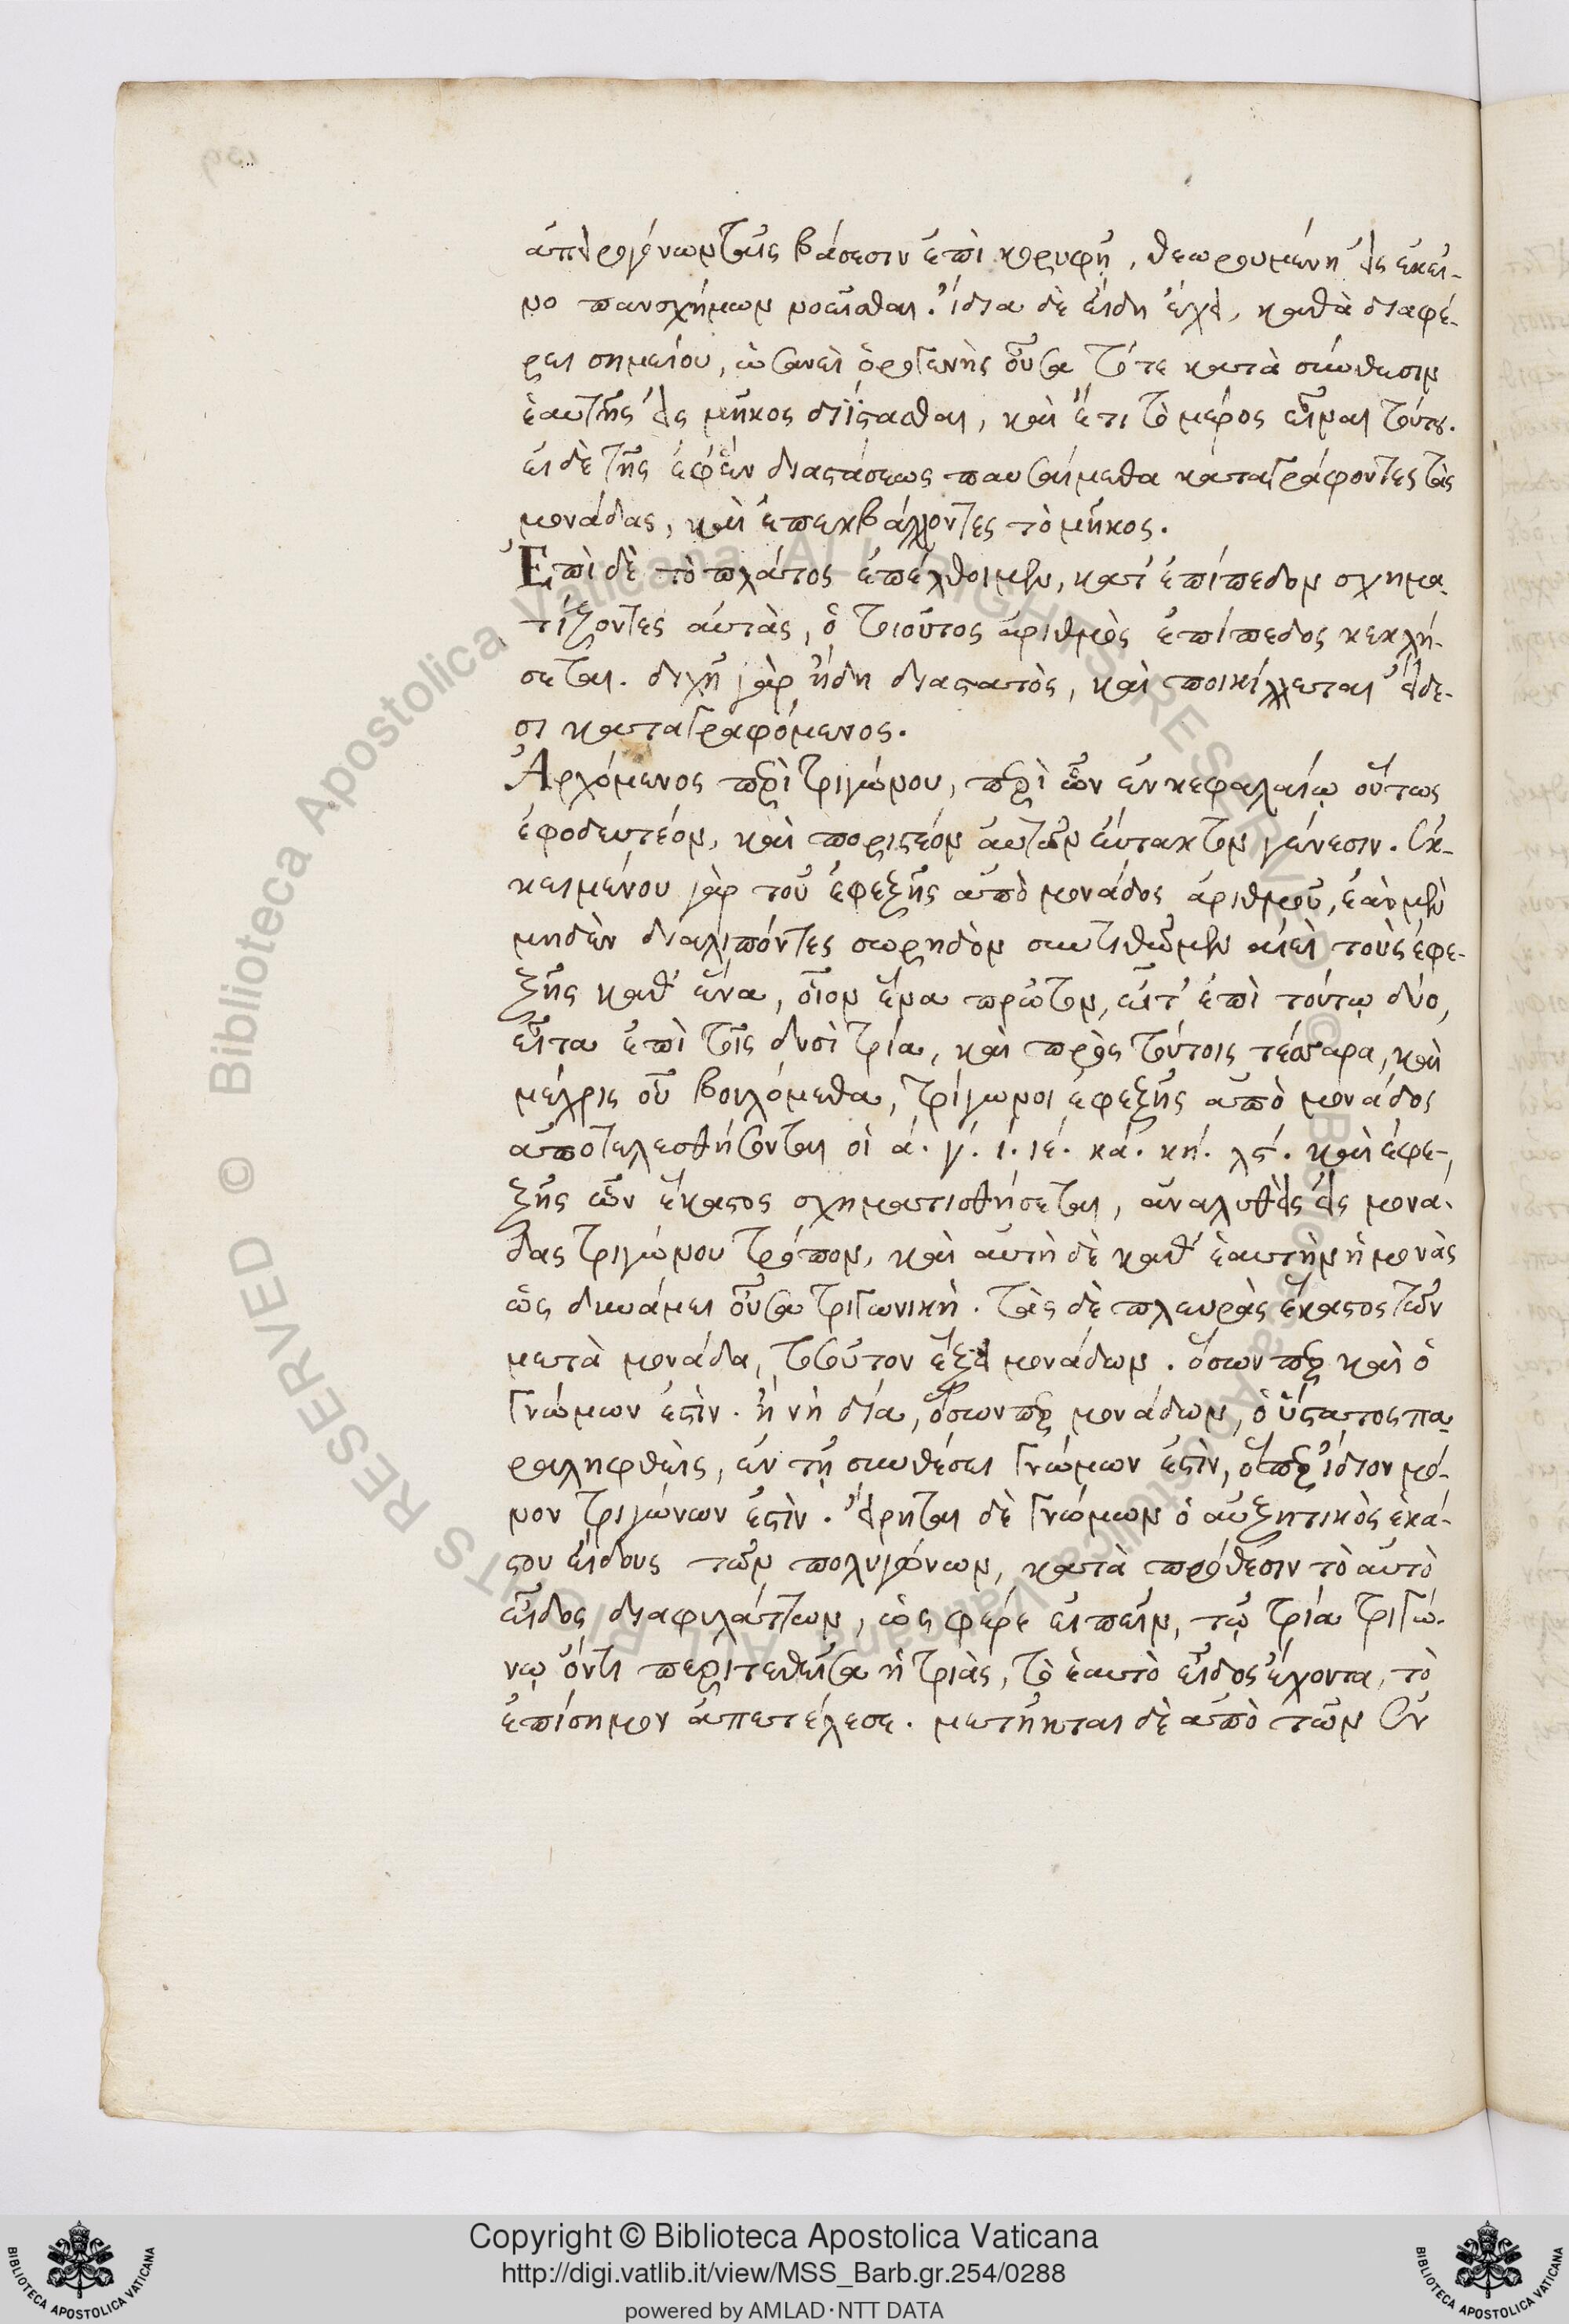 ἀπειρογώνων ταῖς βάσεσιν ἐπὶ κορυφῇ, θεωρουμένη εἰς ἐκεῖ-
νο πανσχήμων νοεῖσθαι. ἴδια δὲ εἴδη ἔχει, καθὰ διαφέ-
ρει σημείου, ὡσανεὶ ὁμογενὴς οὖσα τό τε κατὰ σύνθεσιν
ἑαυτῆς εἰς μῆκος διΐστασθαι, καὶ ἔτι τὸ μέρος εἶναι τούτου.
εἰ δὲ τῆς ἐφ' ἓν διαστάσεως παυσαίμεθα καταγράφοντες τὰς
μονάδας, καὶ ἐπεκβάλλοντες τὸ μῆκος.
Ἐπὶ δὲ τὸ πλάτος ἐπέλθοιμεν, κατ' ἐπίπεδον σχημα-
τίζοντες αὐτὰς, ὁ τοιοῦτος ἀριθμὸς ἐπίπεδος κεκλή-
σεται. διχῆ γὰρ ἤδη διαστατὸς, καὶ ποικίλλεται εἴδε-
σι καταγραφόμενος.
Ἀρχόμενος περὶ τριγώνου, περὶ ὧν ἐν κεφαλαίῳ οὕτως
ἐφοδευτέον, καὶ ποριστέον αὐτῶν εὔτακτον γένεσιν. ἐκ-
κειμένου γὰρ τοῦ ἐφεξῆς ἀπὸ μονάδος ἀριθμοῦ, ἐὰν μὲν
μηδὲν διαλιπόντες σωρηδὸν συντιθῶμεν αἰεὶ τοὺς ἐφε-
ξῆς καθ' ἕνα, οἷον ἕνα πρῶτον, εἶτ' ἐπὶ τούτῳ δύο,
εἶτα ἐπὶ τοῖς δυσὶ τρία, καὶ πρὸς τούτοις τέσσαρα, καὶ
μέχρις οὗ βουλόμεθα, τρίγωνοι ἐφεξῆς ἀπὸ μονάδος
ἀποτελεσθήσονται οἱ ά. γ΄. ι. ιέ. κά. κή. λϛ΄. καὶ ἐφε-
ξῆς ὧν ἕκαστος σχηματισθήσεται, ἀναλυθεὶς εἰς μονά-
δας τριγώνου τρόπον, καὶ αὐτὴ δὲ καθ' ἑαυτὴν ἡ μονὰς
ὡς δυνάμει οὖσα τριγωνική. τὰς δὲ πλευρὰς ἕκαστος τῶν
μετὰ μονάδα, τοσοῦτον ἕξει μονάδων. ὅσων περ καὶ ὁ
γνώμων ἐστὶν. ἢ νὴ δία, ὅσων περ μονάδων, ὁ ὕστατος πα-
ραληφθεὶς, ἐν τῇ συνθέσει γνώμων ἐστὶν, ὅπερ ἴδιον μό-
νον τριγώνων ἐστὶν. εἴρηται δὲ γνώμων ὁ αὐξητικὸς ἑκά-
στου εἴδους τῶν πολυγώνων, κατὰ πρόσθεσιν τὸ αὐτὸ
εἶδος διαφυλάττων, ὡς φέρε εἰπεῖν, τῷ τρία τριγώ-
νῳ ὄντι περιτεθεῖσα ἡ τριὰς, τὸ ἑαυτὸ εἶδος ἔχοντα, τὸ
ἐπίσημον ἀπετέλεσε. μετῆκται δὲ ἀπὸ τῶν ἐν
Copyright © Biblioteca Apostolica Vaticana
http://digi.vatlib.it/view/MSS_Barb.gr.254/0288
powered by AMLAD·NTT DATA